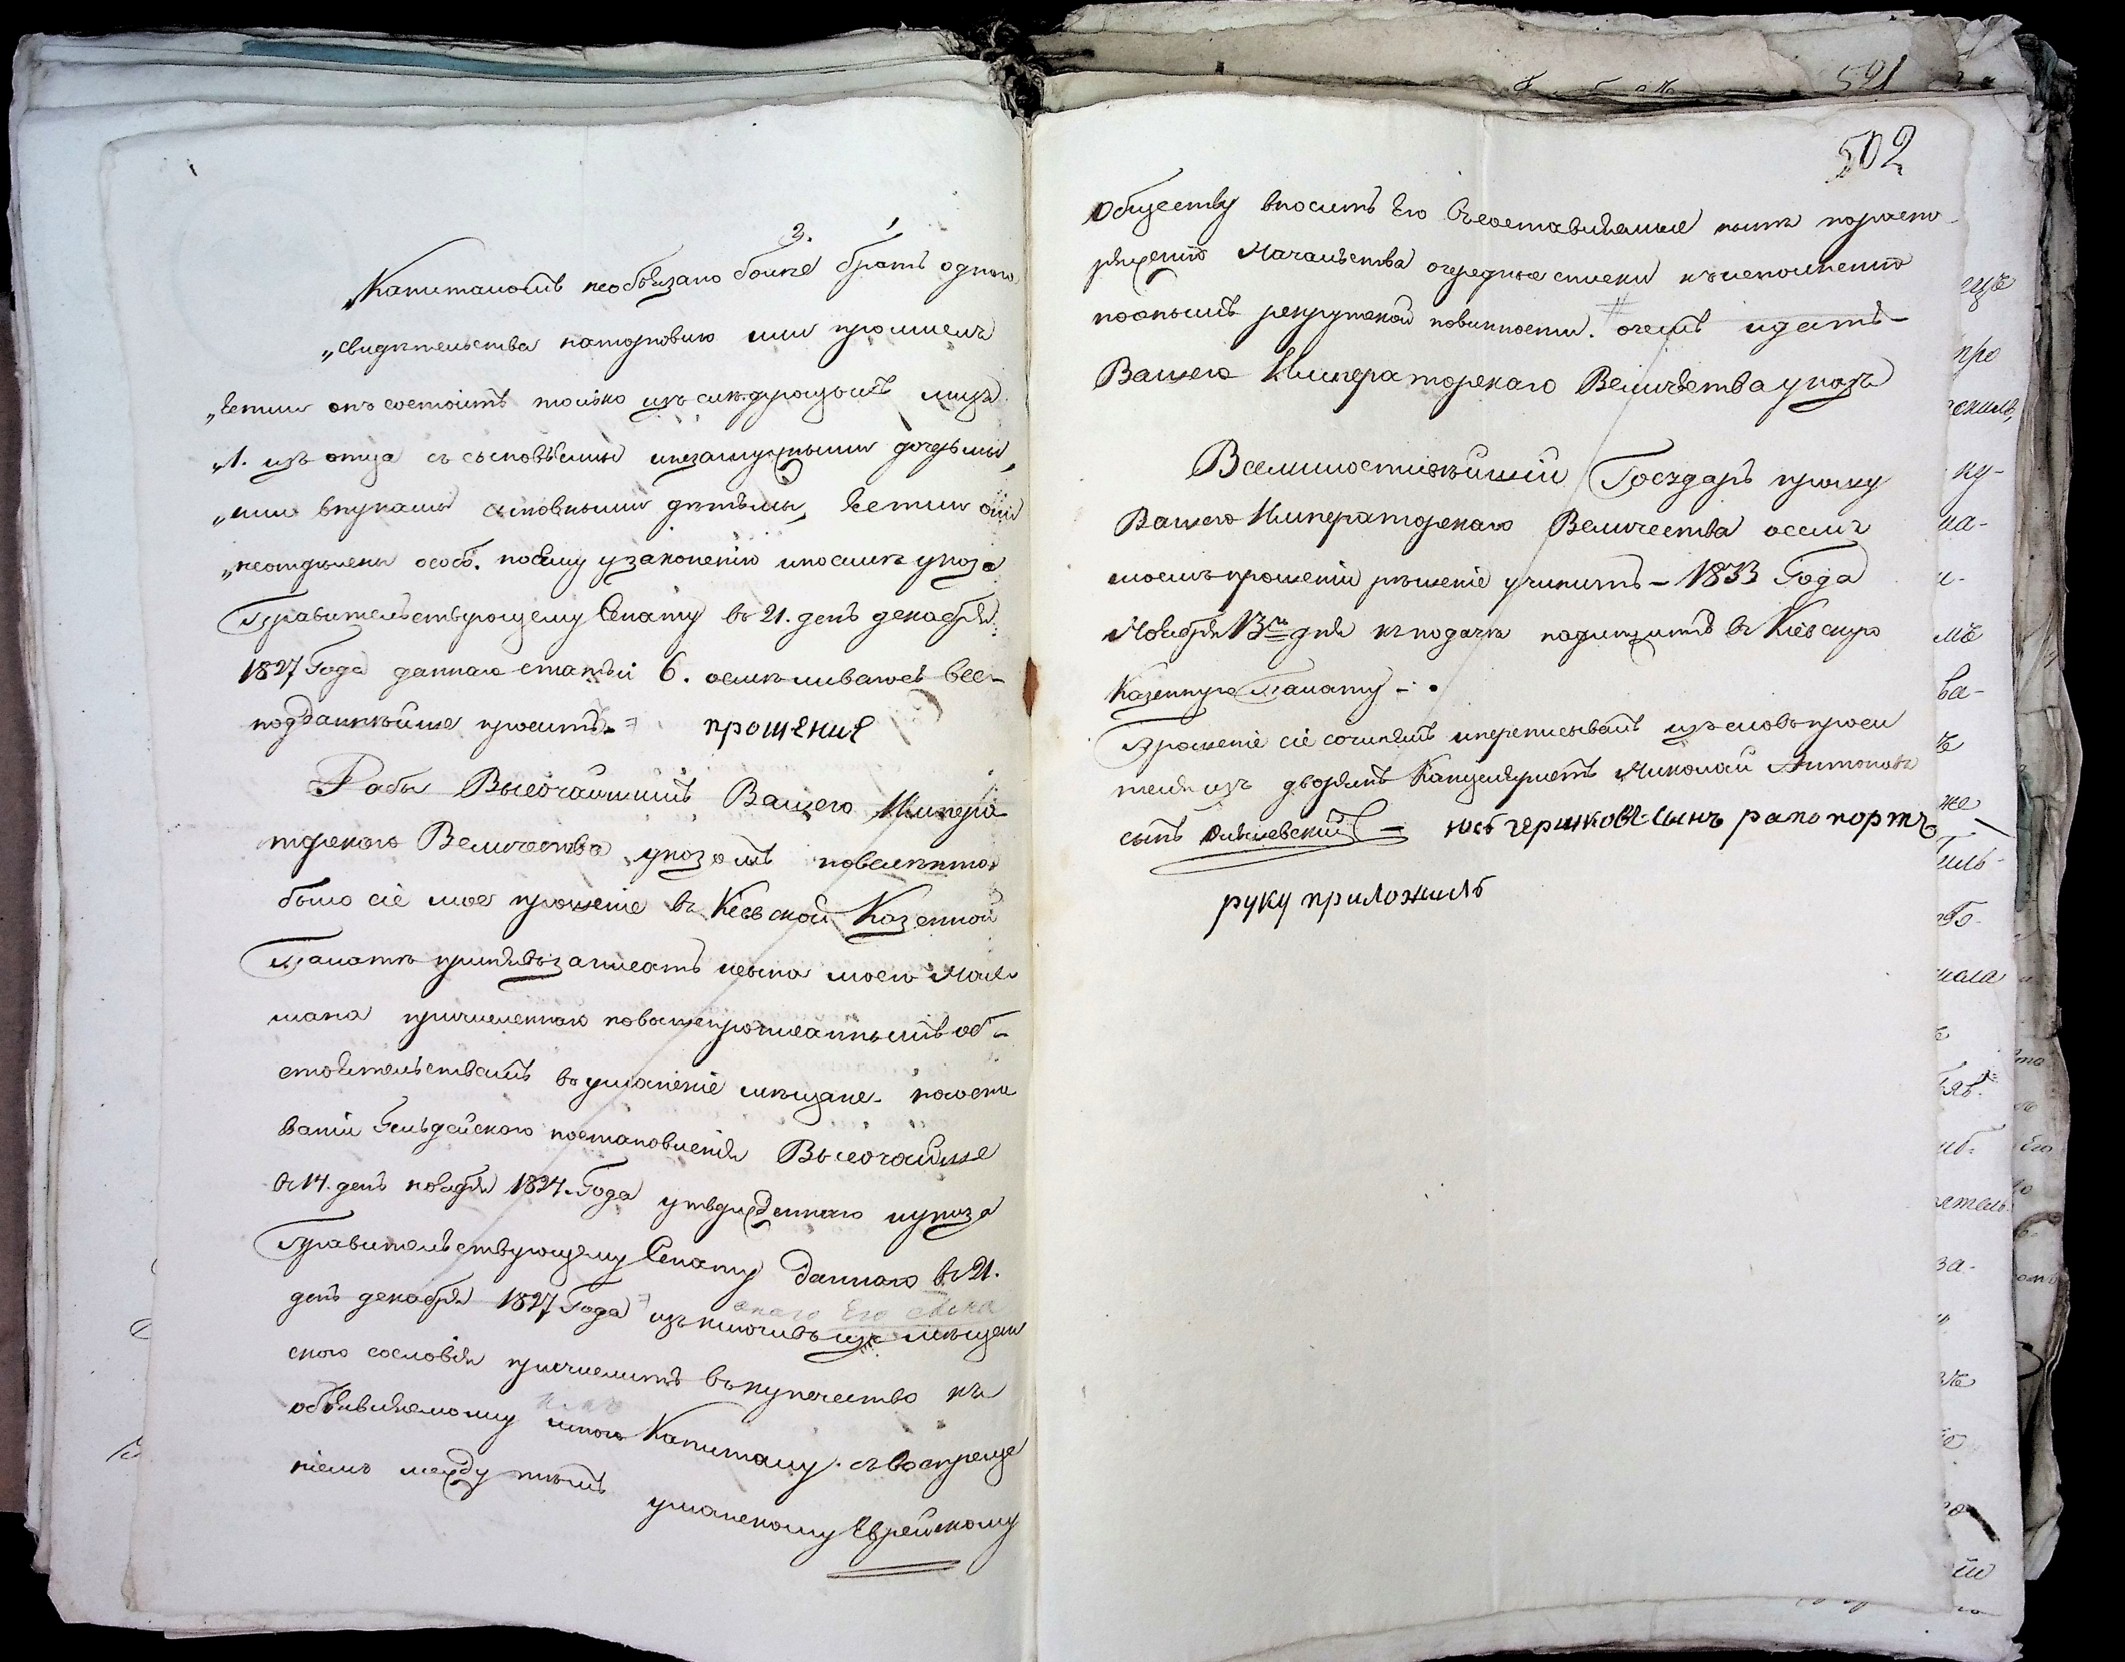 3.
„Капиталомъ необязано болѣе брать одного
„свидѣтельства наторговлю или промыслъ
„естли онъ состоитъ только изъ слѣдующихъ лицъ
„1. изъ отца съ сыновьями инезамужными дочерьми,
„или внуками сыновными дѣтьми, естли они
„неотдѣлены особ. посему узаконенію ипосилѣ указа
Правительствующему Сенату въ 21. день декабря
1827 Года даннаго статьи 6. осмѣливаюсь все-
подданнѣйше просить- прошение
Рабы Высочайшимъ Вашего Импера
торскаго Величества указомъ повелѣнно
было сіе мое прошеніе въ Кіевской Казенной
Палатѣ принявъ записать исына моего
мана причисленнаго повышепрописаннымъ об-
стоятельствамъ въ уманскіе мѣщане- наосно
ваніи Гильдейскаго постановленія Высочайше
въ 14. день ноября 1824. Года утвержденнаго иуказа
Правительствующему Сенату даннаго въ 21.
день декабря 1827 Года изъключивъ изъ мѣщан
онаго Его сына
скаго сословія причислить въ купечество къ
объявляемому мною Капиталу. съвоспреще
ніемъ между тѣмъ уманскому Еврейскому
502
Обществу вносить Его въсоставляемые нынѣ порасто
ряженію Начальства очередные списки къисполненію
посимъ рекрутской повинности. очемъ идать-
Вашего Императорскаго Величества указъ
Всемилостивѣйшій Государь прошу
Вашего Императорскаго Величества осемъ
моемъ прошеніи рѣшеніе учинить- 1833 Года
Ноября 13го дня къ подачѣ надлежитъ въ Кіевскую
Казенную Палату -.
Прошеніе сіе сочинялъ ипереписывалъ изъ словъ проси
теля изъ дворянъ Канцеляристъ Николай Антоновъ
сынъ - гершковъ сынъ рапопортъ
руку приложилъ